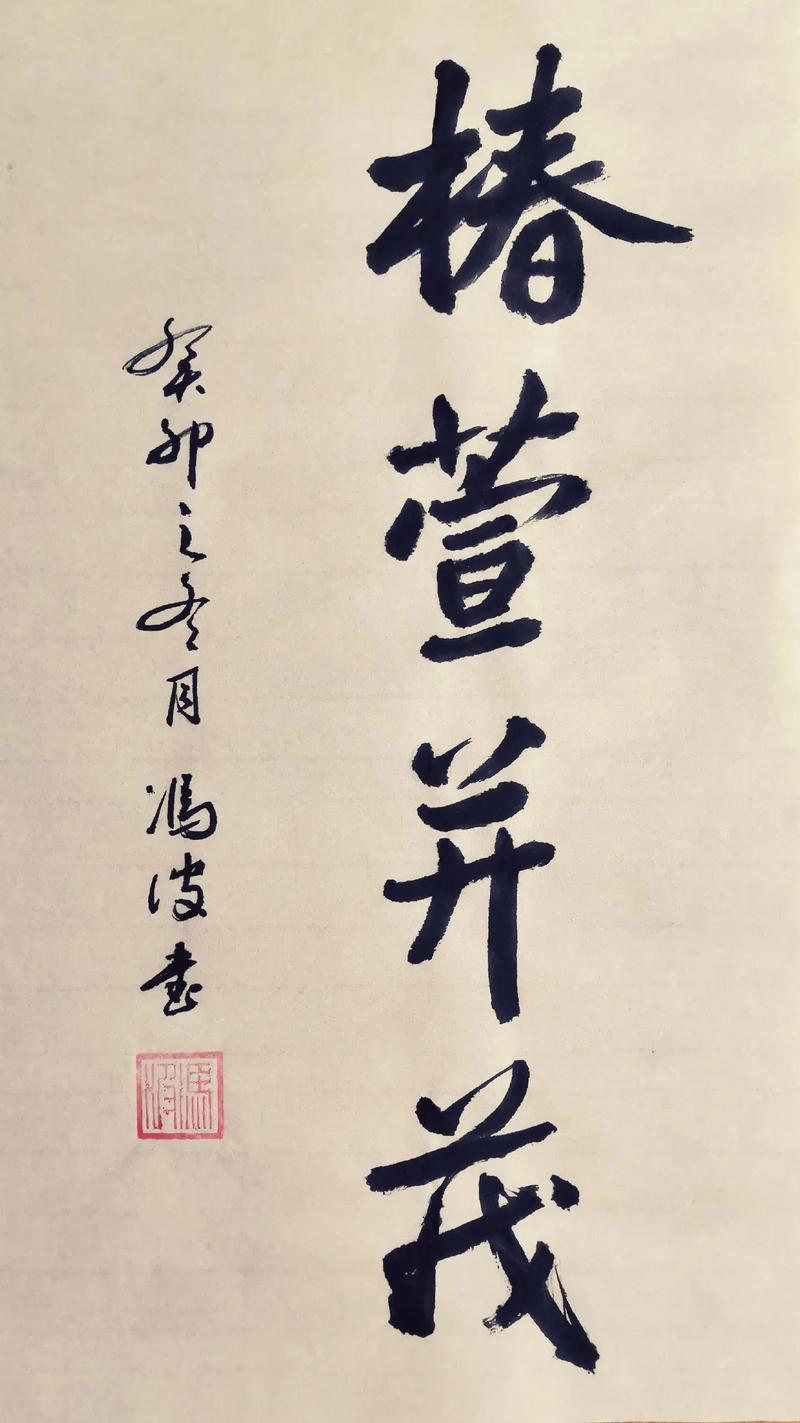 椿萱并茂
癸卯之冬月 馮波書